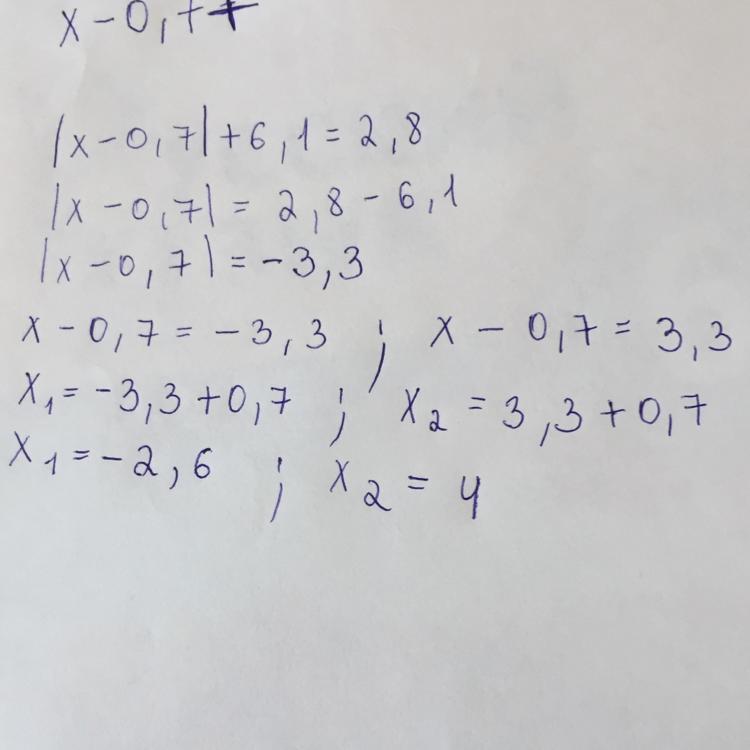 x - 0,7
|x - 0,7| + 6,1 = 2,8
|x - 0,7| = 2,8 - 6,1
|x - 0,7| = -3,3
x - 0,7 = -3,3 ; x - 0,7 = 3,3
x₁ = -3,3 + 0,7 ; x₂ = 3,3 + 0,7
x₁ = -2,6 ; x₂ = 4